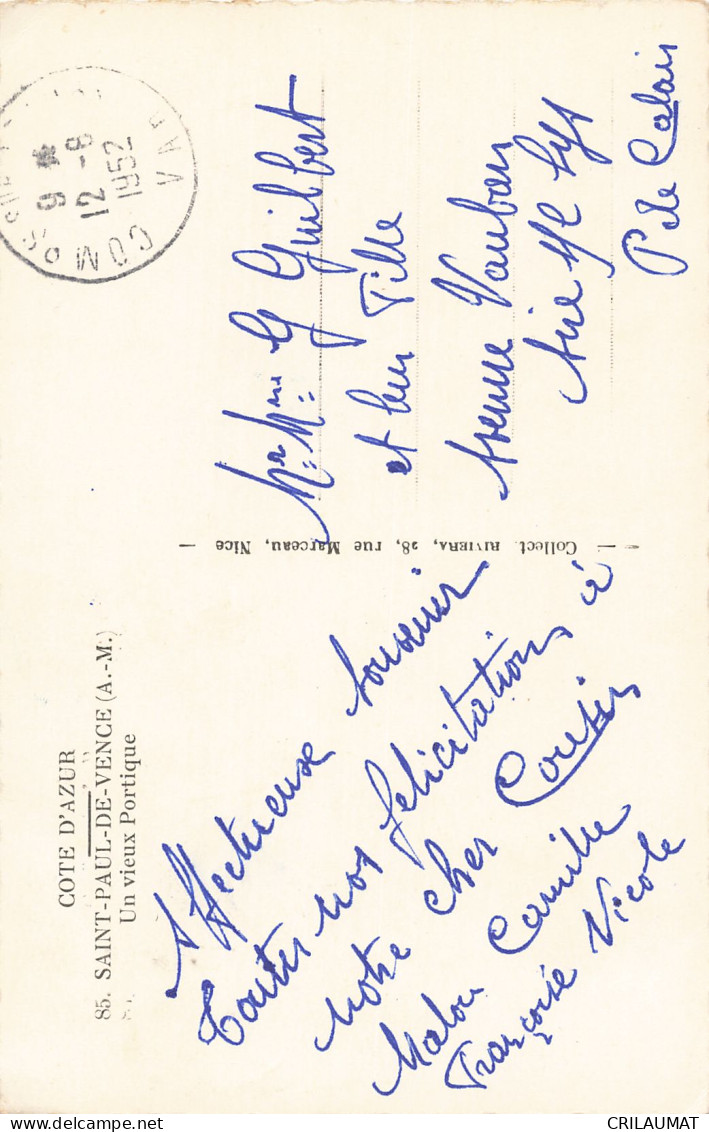 COTE D'AZUR
85. SAINT-PAUL-DE-VENCE (A.-M.)
Un vieux Portique
Affectueuse Souvenir
Toutes nos félicitations à
notre cher Cousin
Malou Camille
Françoise Nicole
Collect. RIVIERA, 28, rue Marceau, Nice
9 *
12 - 8
1952
VAR
Mr. Mme. G Guilbert
et leur Fille
Avenue Vauban
Aire s/ la Lys
P. de Calais
CRILAUMAT